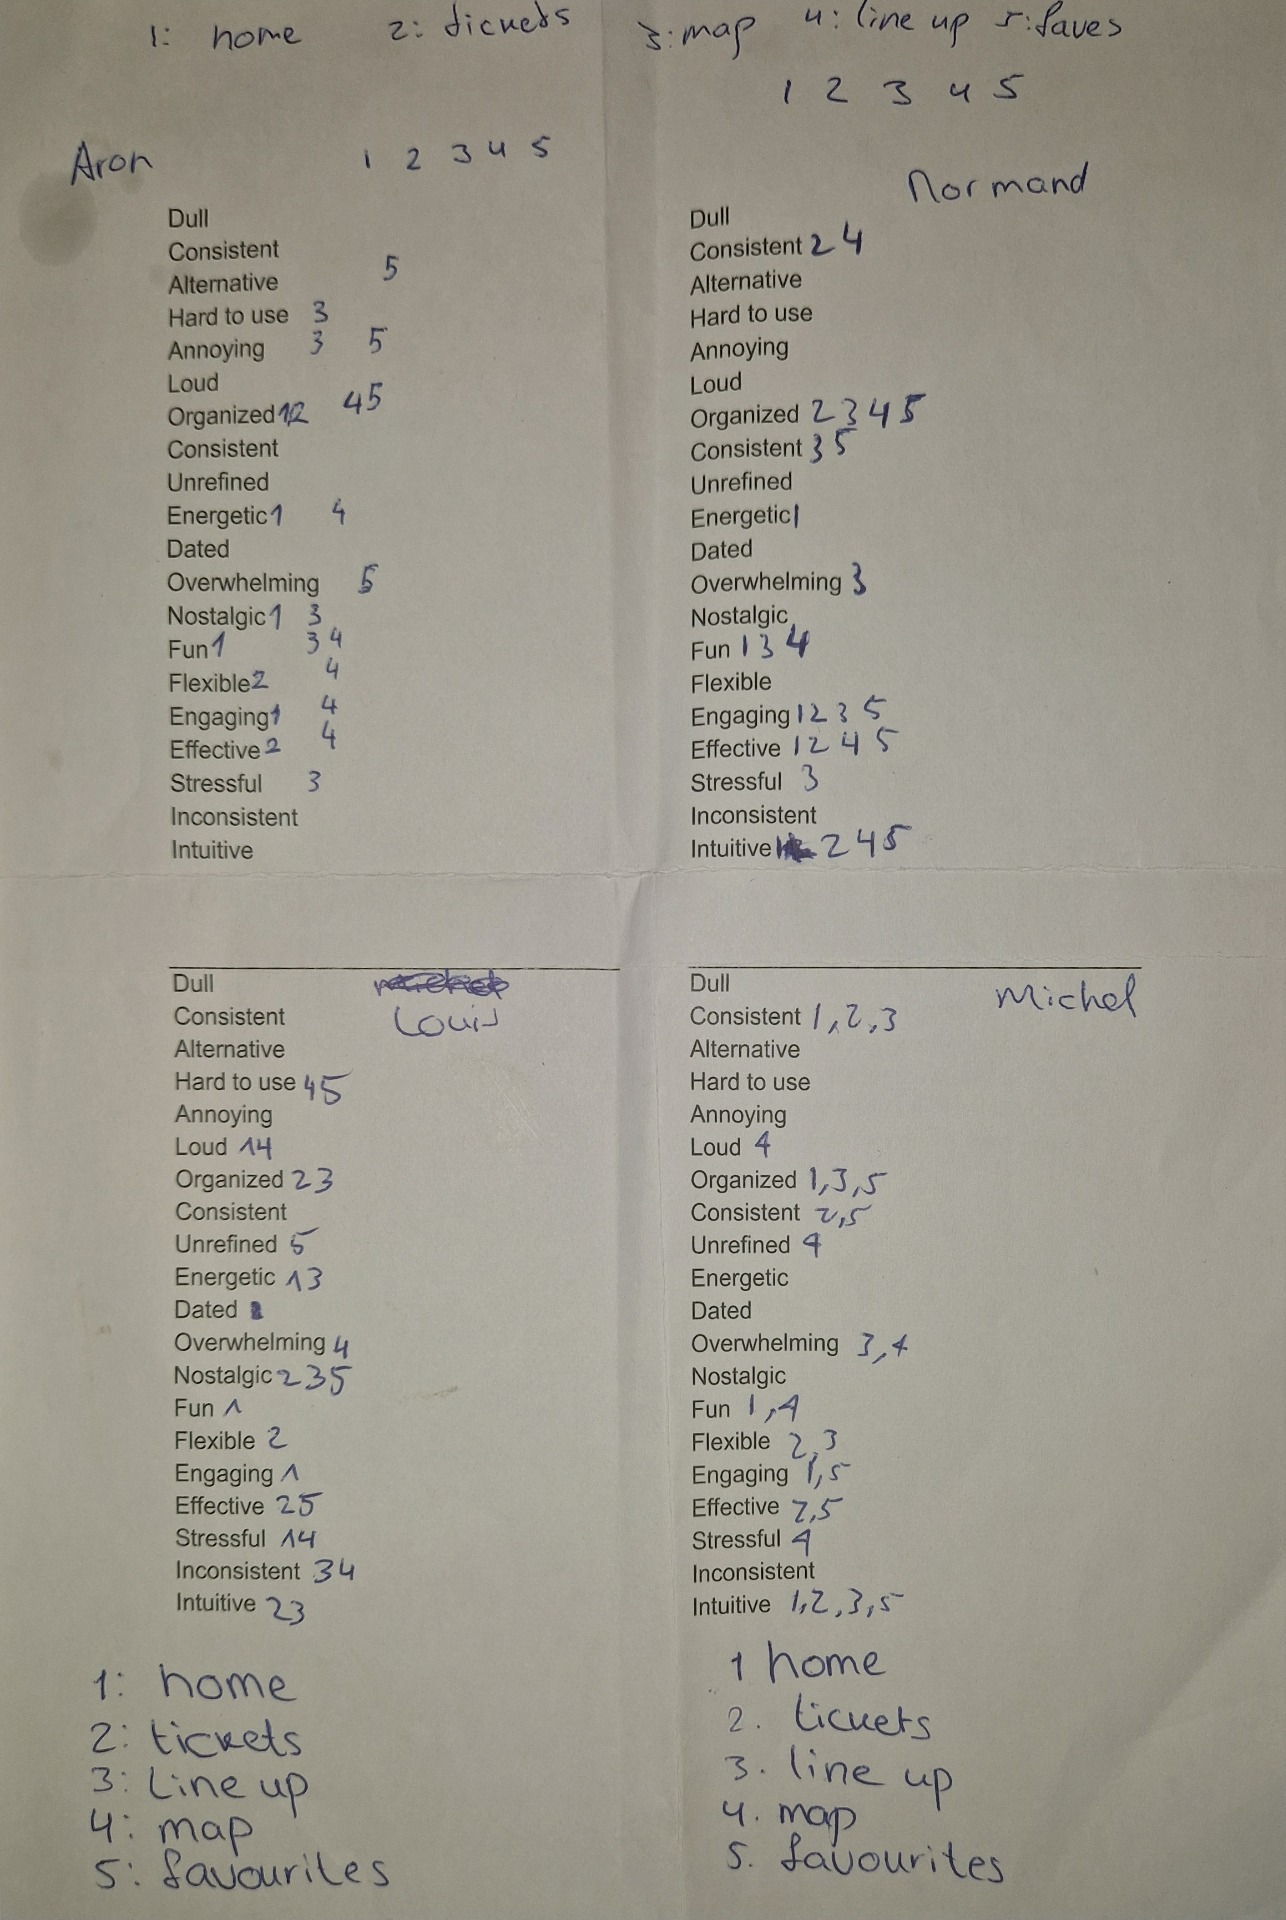 1: home 2: tickets 3: map 4: line up 5: faves
1 2 3 4 5
Aron 1 2 3 4 5
Normand
Dull
Consistent
Alternative 5
Hard to use 3
Annoying 3 5
Loud
Organized 12 45
Consistent
Unrefined
Energetic 1 4
Dated
Overwhelming 5
Nostalgic 1 3
Fun 1 3 4
Flexible 2 4
Engaging 1 4
Effective 2 4
Stressful 3
Inconsistent
Intuitive
Dull
Consistent 2 4
Alternative
Hard to use
Annoying
Loud
Organized 2 3 4 5
Consistent 3 5
Unrefined
Energetic 1
Dated
Overwhelming 3
Nostalgic
Fun 1 3 4
Flexible
Engaging 1 2 3 5
Effective 1 2 4 5
Stressful 3
Inconsistent
Intuitive 2 4 5
Dull
Louis
Consistent
Alternative
Hard to use 45
Annoying
Loud 14
Organized 23
Consistent
Unrefined 5
Energetic 13
Dated
Overwhelming 4
Nostalgic 235
Fun 1
Flexible 2
Engaging 1
Effective 25
Stressful 14
Inconsistent 34
Intuitive 23
1: home
2: tickets
3: Line up
4: map
5: favourites
Dull
Michel
Consistent 1,2,3
Alternative
Hard to use
Annoying
Loud 4
Organized 1,3,5
Consistent 2,5
Unrefined 4
Energetic
Dated
Overwhelming 3,4
Nostalgic
Fun 1,4
Flexible 2,3
Engaging 1,5
Effective 2,5
Stressful 4
Inconsistent
Intuitive 1,2,3,5
1 home
2. tickets
3. line up
4. map
5. favourites